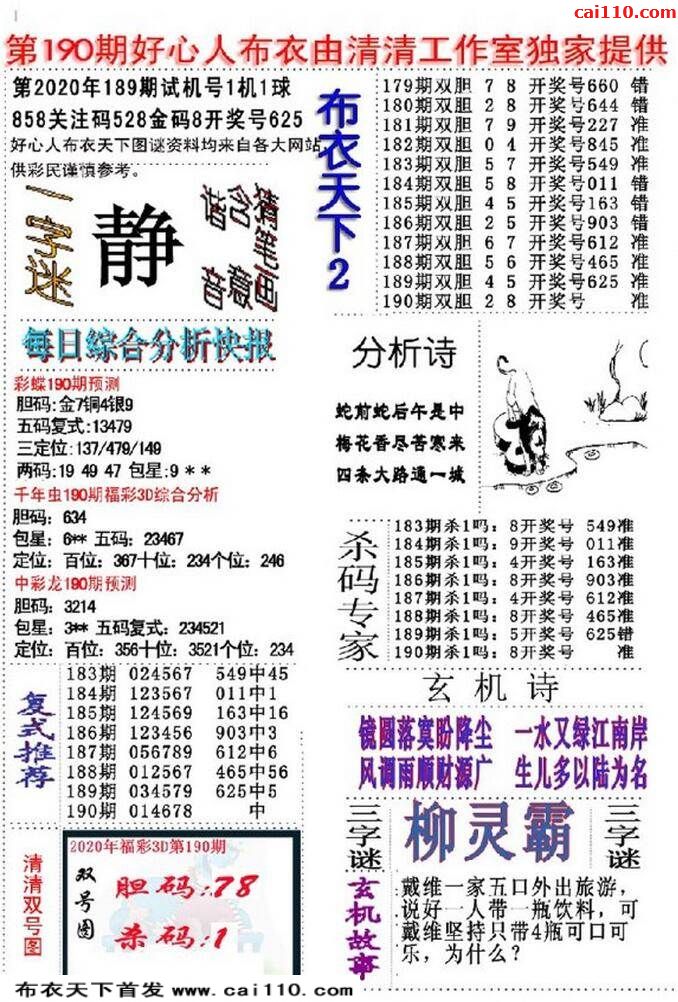 cai110.com
第190期好心人布衣由清清工作室独家提供
第2020年189期试机号1机1球
858关注码528金码8开奖号625
好心人布衣天下图谜资料均来自各大网站,
供彩民谨慎参考。
一字迷
静
谐音
含意
猜笔画
每日综合分析快报
彩蝶190期预测
胆码:金7铜4银9
五码复式:13479
三定位:137/479/149
两码:19 49 47 包星:9 * *
千年虫190期福彩3D综合分析
胆码: 634
包星: 6** 五码: 23467
定位: 百位: 367十位: 234个位: 246
中彩龙190期预测
胆码: 3214
包星: 3** 五码复式: 234521
定位: 百位: 356十位: 3521个位: 234
复式推荐
183期 024567 549中45
184期 123567 011中1
185期 124569 163中16
186期 123456 903中3
187期 056789 612中6
188期 012567 465中56
189期 034579 625中5
190期 014678 中
清清双号图
2020年福彩3D第190期
双号图
胆码:78
杀码:1
布衣天下2
179期双胆 7 8 开奖号660 错
180期双胆 2 8 开奖号644 错
181期双胆 7 9 开奖号227 准
182期双胆 0 4 开奖号845 准
183期双胆 5 7 开奖号549 准
184期双胆 5 8 开奖号011 错
185期双胆 4 5 开奖号163 错
186期双胆 2 5 开奖号903 错
187期双胆 6 7 开奖号612 准
188期双胆 5 6 开奖号465 准
189期双胆 4 5 开奖号625 准
190期双胆 2 8 开奖号 准
分析诗
蛇前蛇后午是中
梅花香尽苦寒来
四条大路通一城
杀码专家
183期杀1吗: 8开奖号 549准
184期杀1吗: 9开奖号 011准
185期杀1吗: 4开奖号 163准
186期杀1吗: 8开奖号 903准
187期杀1吗: 4开奖号 612准
188期杀1吗: 8开奖号 465准
189期杀1吗: 5开奖号 625错
190期杀1吗: 8开奖号 准
玄机诗
镜圆落寞盼降尘 一水又绿江南岸
风调雨顺财源广 生儿多以陆为名
三字谜
柳灵霸
三字谜
玄机故事
戴维一家五口外出旅游,
说好一人带一瓶饮料,可
戴维坚持只带4瓶可口可
乐,为什么?
布衣天下首发 www.cai110.com